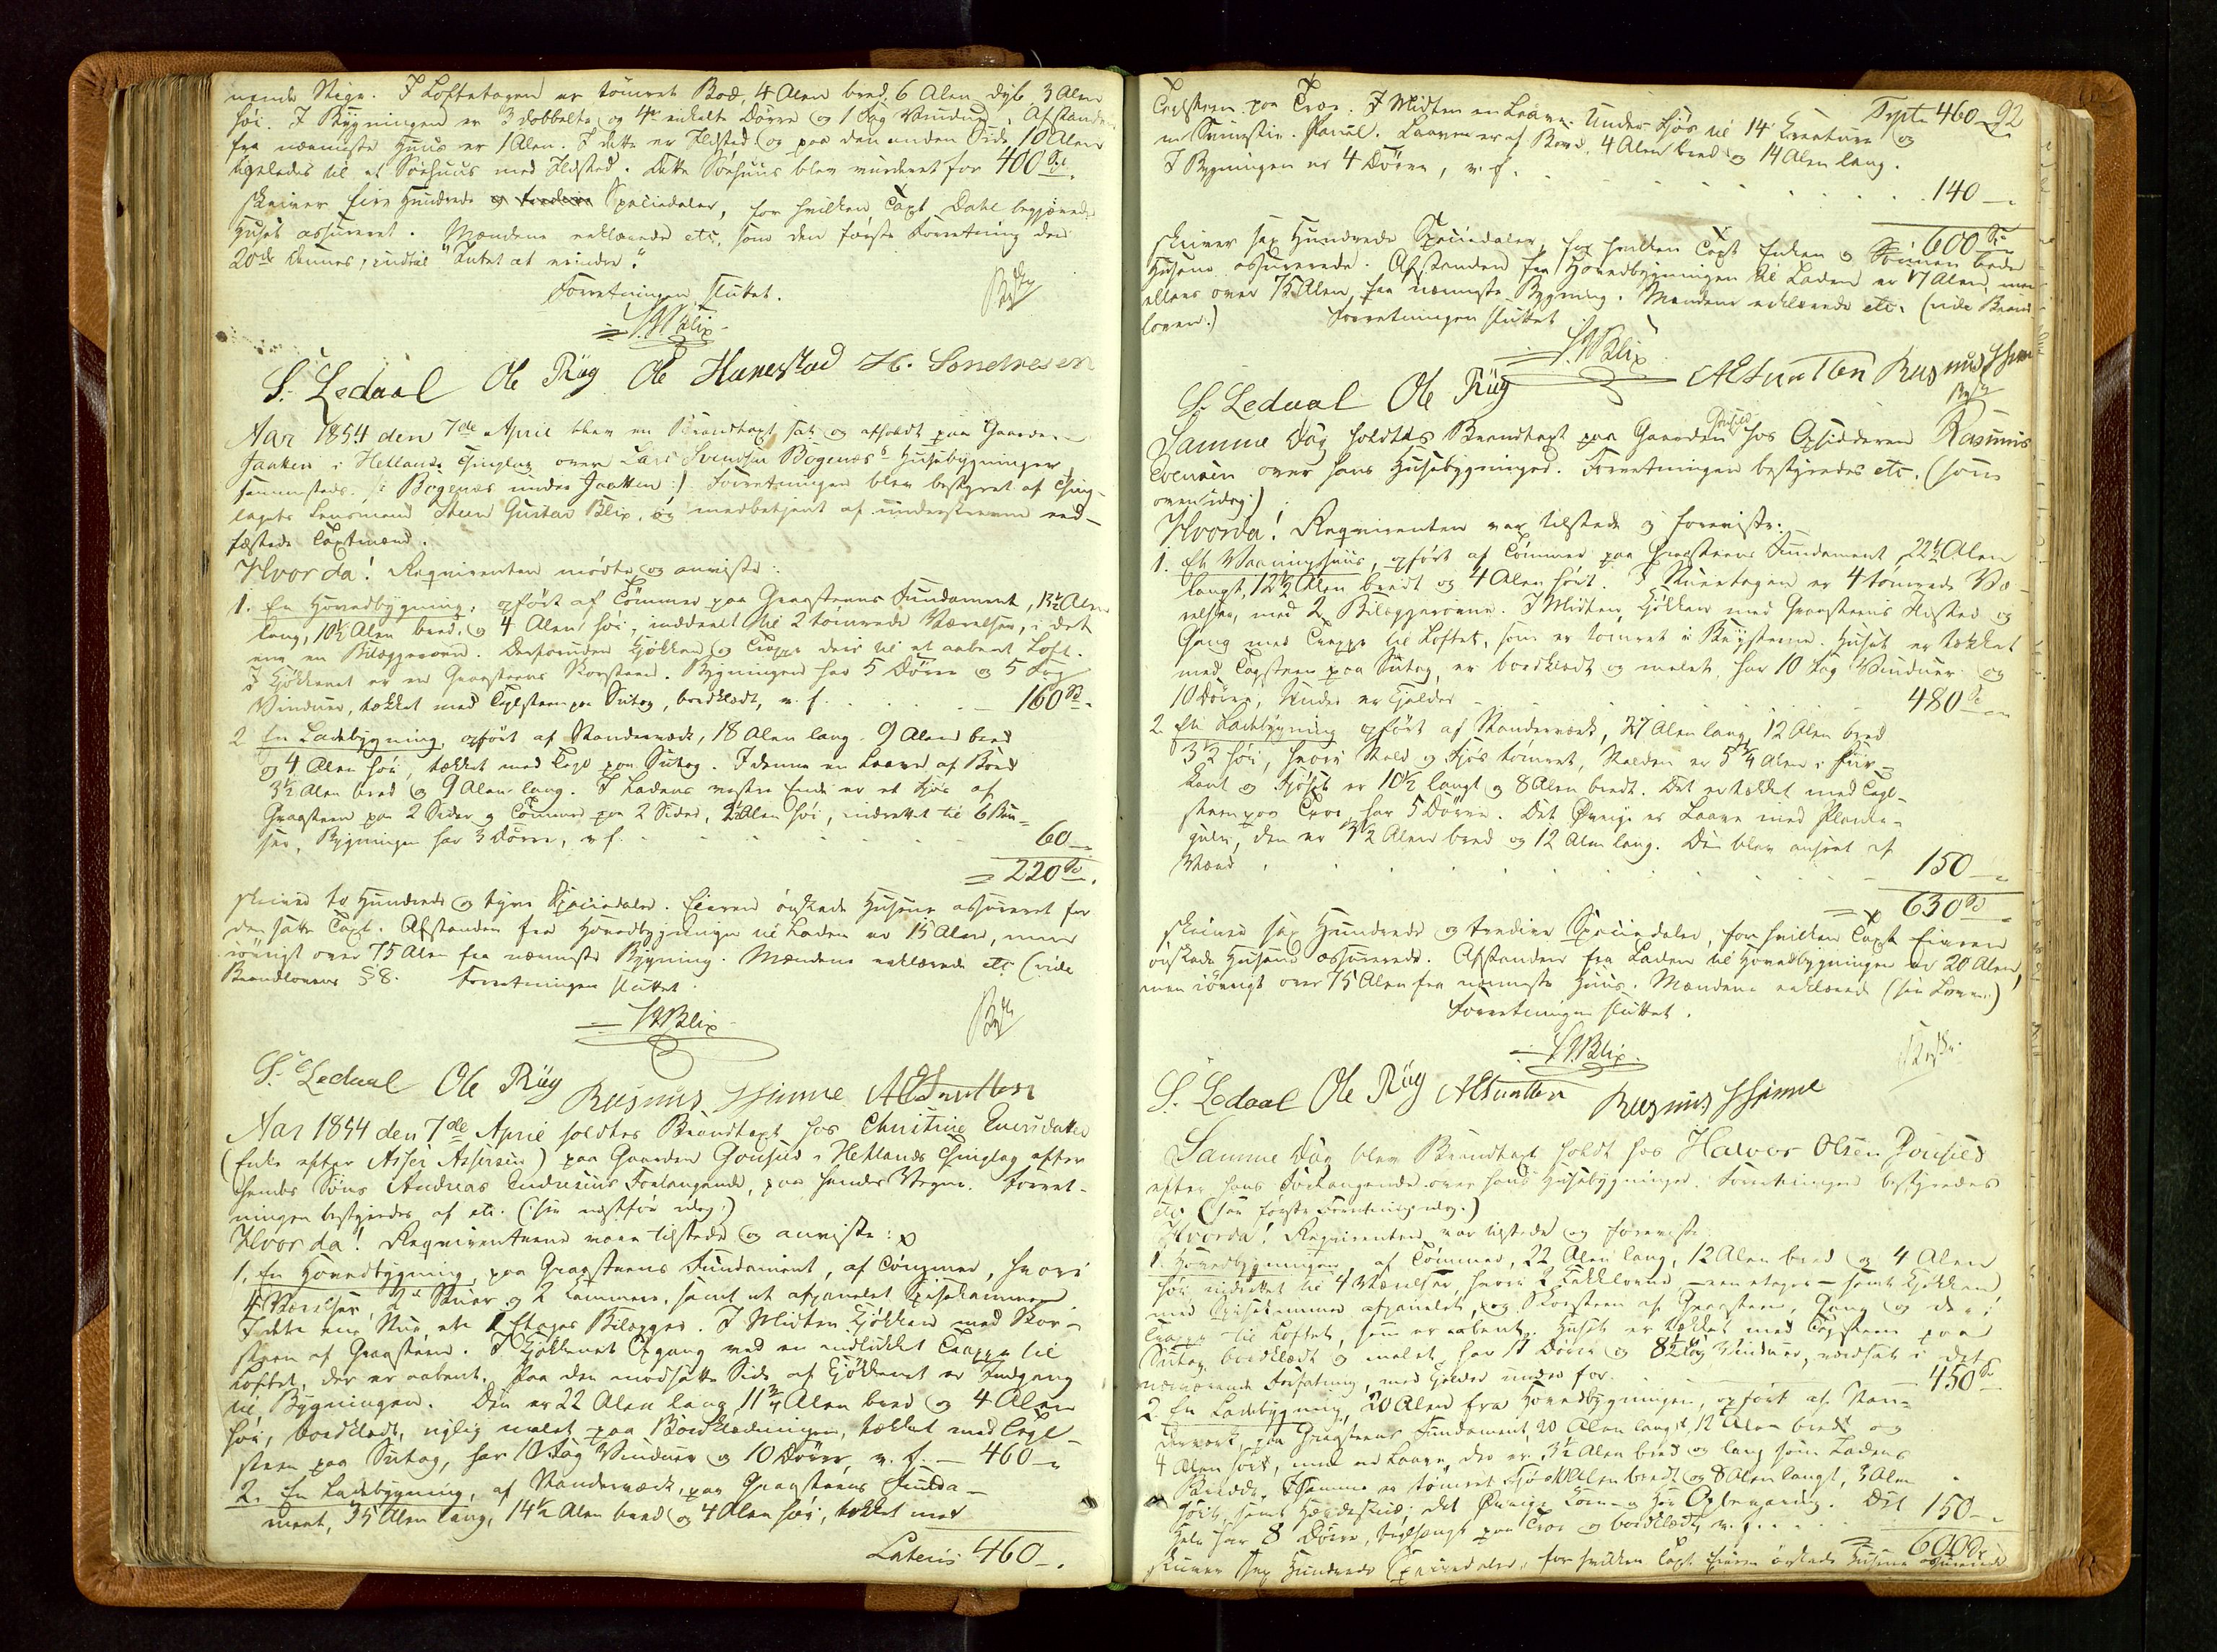 nende Stege. I Loftetagen er tømret Bod, 4 Alen bred, 6 Alen dyb, 3 Alen
høi. I Bygningen er 3 dobbelte og 4 enkelte Dørre og 1 Fag Vinduer. Afstanden
fra nærmeste Huus er 1 Alen. I dette er Ildsted og paa den anden Side 10 Alen
ligeledes til et Søehuus med Ildsted. Dette Søehuus blev vurderet for 400 Sp.
skriver fire Hundrede Speciedaler, for hvilken Taxt Dahl begjærede
Huset assureret. Mændene erklærede etc. som den første Forretning den
20de dennes, indtil "Intet at erindre."
Forretningen sluttet.
S.G. Blix
S. Ledaal Ole Rüg Ole Hanestad H. Sondresen
Aar 1854 den 7de April blev en Brandtaxt sat og afholdt paa Gaarden
Jaatten i Hetlands Thinglag over Lars Svendsen Bogenæs's Huusebygninger
sammesteds. (: Bogenæs under Jaatten :) Forretningen blev bestyret af Thing-
lagets Lensmand Steen Gustav Blix, og medbetjent af underskrevne eed-
fæstede Taxtmænd.
Hvorda! Reqvirenten mødte og anviste:
1. En Hovedbygning, opført af Tømmer paa Graasteens Fundament, 13½ Alen
lang, 10½ Alen bred, og 4 Alen høi, inddeelt til 2 tømrede Værelser, i det
ene en Bilæggerovn. Desforuden Kjøkken og Trappe deri til et aabent Loft.
I Kjøkkenet er en Graasteens Skorsteen. Bygningen har 5 Dørre og 5 Fag
Vinduer, tækket med Teglsteen paa Sutag, bordklædt, v. f. 160 Sp.
2 En Ladebygning, opført af Standerværk, 18 Alen lang, 9 Alen bred
og 4 Alen høi, tækket med Tegl paa Sutag. I denne en Laave af Bord
3½ Alen bred og 9 Alen lang. I Ladens vestre Ende er et Fjøs af
Graasteen paa 2 Sider og Tømmer paa 2 Sider, 3 Alen høi, indrettet til 6 Bau-
ser, Bygningen har 3 Dørre, v f. 60 —
= 220 Sp.
skriver to Hundrede og tyve Speciedaler. Eieren ønskede Husene assureret for
den satte Taxt. Afstanden fra Hovedbygningen til Laden er 15 Alen, men
iøvrigt over 75 Alen fra nærmeste Bygning. Mændene erklærede etc (vide
Brandlovens § 8. Forretningen sluttet.
S.G. Blix
S. Ledaal Ole Rüg Rasmus Hinne A E Tuntlen
Aar 1854 den 7de April holdtes Brandtaxt hos Christine Eversdatter
(Enke efter Asser Assersen) paa Gaarden Gousel i Hetlands Thinglag efter
hendes Søns Andreas Endresens Forlangende, paa hendes Vegne. Forret-
ningen bestyredes af etc. (: see næstfør idag :)
Hvorda! Reqvirenterne vare tilstede og anviste:
1. En Hovedbygning, paa Graasteens Fundament, af Tømmer, hvori
4 Værelser, 2 Stuer og 2 Kammere, samt et afpanelet Spisekammer.
I dette ene Stue en 2 Etages Bilægger. I Midten Kjøkken med Skor-
steen af Graasteen. I Kjøkkenet Opgang ved en indlukket Trappe til
Loftet, der er aabent. Paa den modsatte Side af Kjøkkenet er Indgang
til Bygningen. Den er 22 Alen lang, 11¾ Alen bred og 4 Alen
høi, bordklædt, nylig malet paa Bordklædningen, tækket med Tegl-
steen paa Sutag, har 10 Fag Vinduer og 10 Dørre, v. f. — 460 —
2. En Ladebygning, af Standerværk, paa Graasteens Funda-
ment, 35 Alen lang, 14½ Alen bred og 4 Alen høi, tækket med
Lateris 460 —.
Trspt. 460 — 92
Teglsteen paa Troe. I Midten en Laave. Under Fjøs til 14 Creature og
en Svinestie. Laaven er af Bord, 4 Alen bred og 14 Alen lang.
I Bygningen er 4 Dørre, v. f. 140 —
600 Sp
skriver sex Hundrede Speciedaler, for hvilken Taxt Enken og Sønnen begge
Husene assurerede. Afstanden fra Hovedbygningen til Laden er 17 Alen, men
ellers over 75 Alen fra nærmeste Bygning. Mændene erklærede etc. (vide Brand-
loven.) Forretningen sluttet
S.G. Blix
S. Ledaal Ole Rüg A E Tuntlen Rasmus Hinne
Samme Dag holdtes Brandtaxt paa Gaarden Gousel hos Opsidderen Rasmus
Evensen over hans Huusebygninger. Forretningen bestyredes etc. (som
oven idag.)
Hvorda! Reqvirenten var tilstede og foreviste:
1. Et Vaaningshuus, opført af Tømmer paa Graasteens Fundament, 22½ Alen
langt, 12½ Alen bredt og 4 Alen høit. I Stueetagen er 4 tømrede Væ-
relser, med 2 Bilæggerovne. I Midten Kjøkken med Graasteens Ildsted og
Gang med Trappe til Loftet, som er tømret i Røststerne. Huset er tækket
med Tagsteen paa Sutag, er bordklædt og malet, har 10 Fag Vinduer og
10 Dørre, Under er Kjelder 480 Sp
2. En Ladebygning opført af Standerværk, 27 Alen lang, 12 Alen bred
3½ høi, hvori Stald og Fjøs tømret, Stalden er 5¾ Alen i Fiir-
kant og Fjøset er 10½ langt og 8 Alen bredt. Det er tækket med Tegl-
steen paa Troe, har 5 Dørre. Det Øvrige er Laave med Planke-
gulv, den er 3½ Alen bred og 12 Alen lang. Den blev anseet af
Værd 150 —
= 630 Sp
skriver sex Hundrede og tredive Speciedaler, for hvilken Taxt Eieren
ønskede Husene assurerede. Afstanden fra Laden til Hovedbygningen er 20 Alen,
men iøvrigt over 75 Alen fra nærmeste Huus. Mændene erklærede (see Loven)
Forretningen sluttet.
S.G. Blix.
S. Ledaal Ole Rüg A E Tuntlen Rasmus Hinne
Samme Dag blev Brandtaxt holdt hos Halvor Olsen Gousel
efter hans Forlangende over hans Huusebygninger. Forretningen bestyredes
etc (see første Forretning idag.)
Hvorda! Reqvirenten var tilstede og foreviste:
1. Hovedbygningen, af Tømmer, 22 Alen lang, 12 Alen bred og 4 Alen
høi, indrettet til 4 Værelser, hvori 2 Kakkelovne — een etages — samt Kjøkken
med Spisekammer afpanelet, og Skorsteen af Graasteen, Gang og deri
Trappe til Loftet, som er aabent. Huset er tækket med Tagsteen paa
Sutag, bordklædt og malet, har 11 Dørre og 8½ Fag Vinduer, værdsat i det
nærværende Forfatning, med Kjelder under for. 450 Sp
2. En Ladebygning, 20 Alen fra Hovedbygningen, opført af Stan-
derværk, paa Graasteens Fundament, 20 Alen langt, 12 Alen bredt og
4 Alen høit, med en Laave, der er 3½ Alen bred og lang som Ladens
Bredde. I samme er tømret Fjøs Alen bredt og 8 Alen langt, 3 Alen
høit, samt Hestestald; det Øvrige Korn- og Høe Opbevaring. Det
Hele har 8 Dørre, teglhængt paa Troe og bordklædt, v. f. 150 —
= 600 Sp
skriver sex Hundrede Speciedaler, for hvilken Taxt Eieren ønskede Husene assurerede